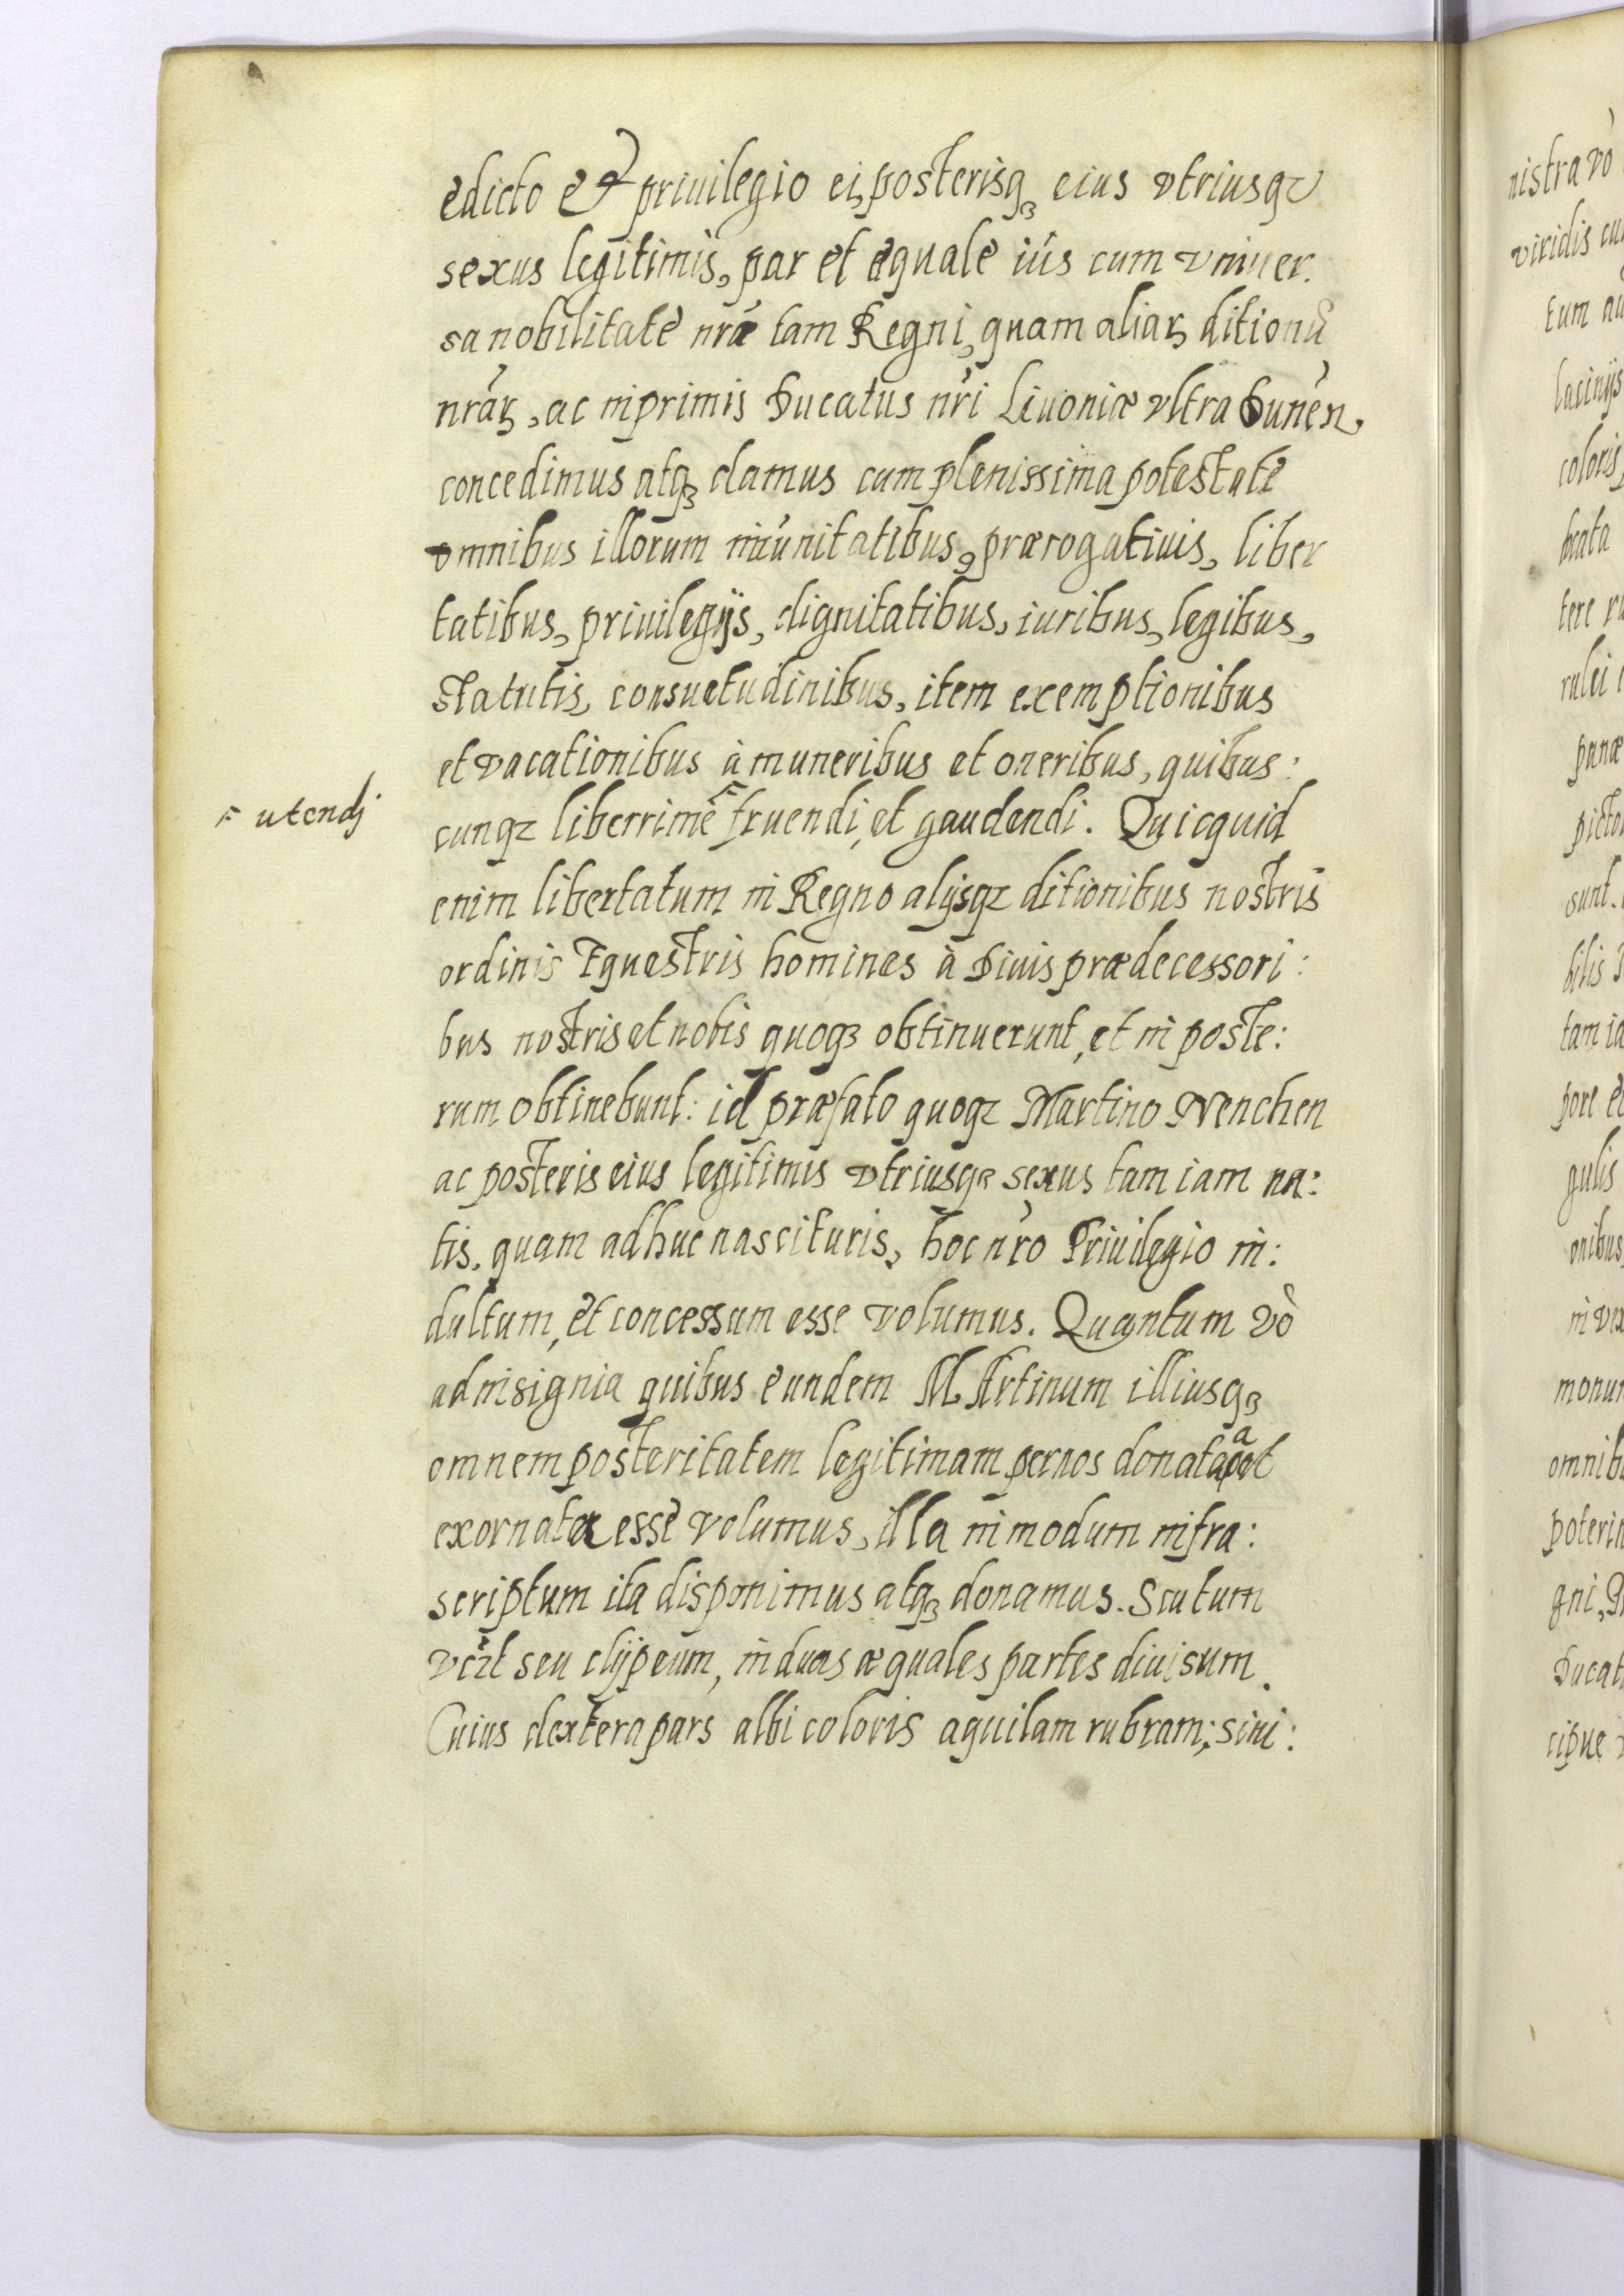 edicto et priuilegio ei, posterisqꝫ eius vtriusqꝫ
sexus legitimis, par et equale iús cum vniuer.
sa nobilitate nrǽ tam Regni, quam aliarꝫ ditionū
nrárꝫ, ac inprimis Ducatus nri Liuoniæ vltra Dunen.
concedimus atqꝫ damus cum plenissima potestate
omnibus illorum imunitatibus, prærogatiuis, liber
tatibus, priuilegijs, dignitatibus, iuribus, legibus,
statutis, consuetudinibus, item exemptionibus
et vacationibus à muneribus et oneribus, quibus:
utendj
cunqꝫ liberrime fruendi, et gaudendi. Quicquid
enim libertatum in Regno alijsqꝫ ditionibus nostris
ordinis Equestris homines à Diuis prædecessori:
bus nostris et nobis quoqꝫ obtinuerunt, et in poste:
rum obtinebunt: id præfato quoqꝫ Martino Wenchen
ac posteris eius legitimis vtriusqꝫ sexus tam iam na:
tis, quam adhuc nascituris, hoc nro Priuilegio in:
dultum, et concessum esse volumus. Quantum vò
ad insignia quibus eundem MArtinum illiusqꝫ
omnem posteritatem legitimam per nos donata et
exornata esse volumus, illa in modum infra:
scriptum ita disponimus atqꝫ donamus. Scutum
vizt seu clijpeum, in duas æquales partes diuisum.
Cuius dextera pars albi coloris aquilam rubram; sini:
nistra vò
viridis cu
tum au
lacinijs
coloris,
tere ru
rulei
panæ
picto
sunt.
bilis
tam ia
pore e
gulis
onibus
in vex
monum
omnib
poterin
gni,
Ducat
cipue